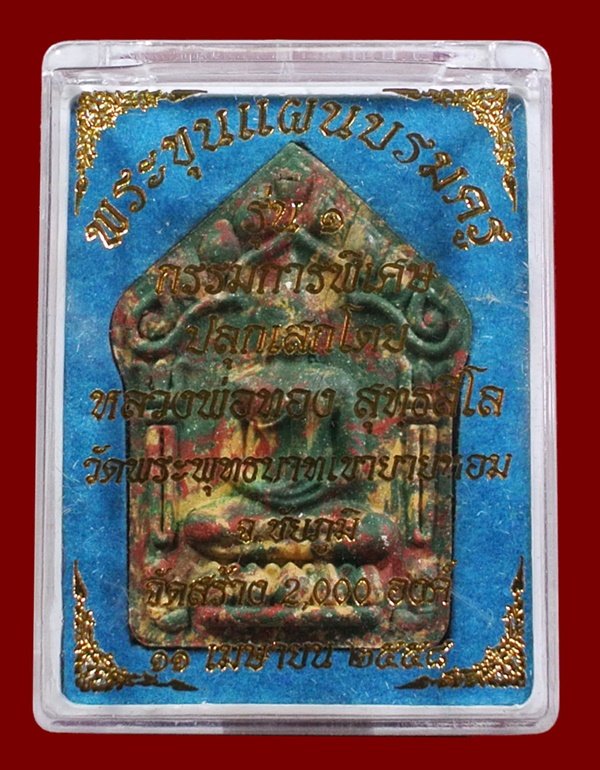 พระขุนแผนบรมครู
รุ่น ๑
กรรมการพิเศษ
ปลุกเสกโดย
หลวงพ่อทอง สุทฺธสีโล
วัดพระพุทธบาทเขายายหอม
จ.ชัยภูมิ
จัดสร้าง 2,000 องค์
๑๑ เมษายน ๒๕๕๘